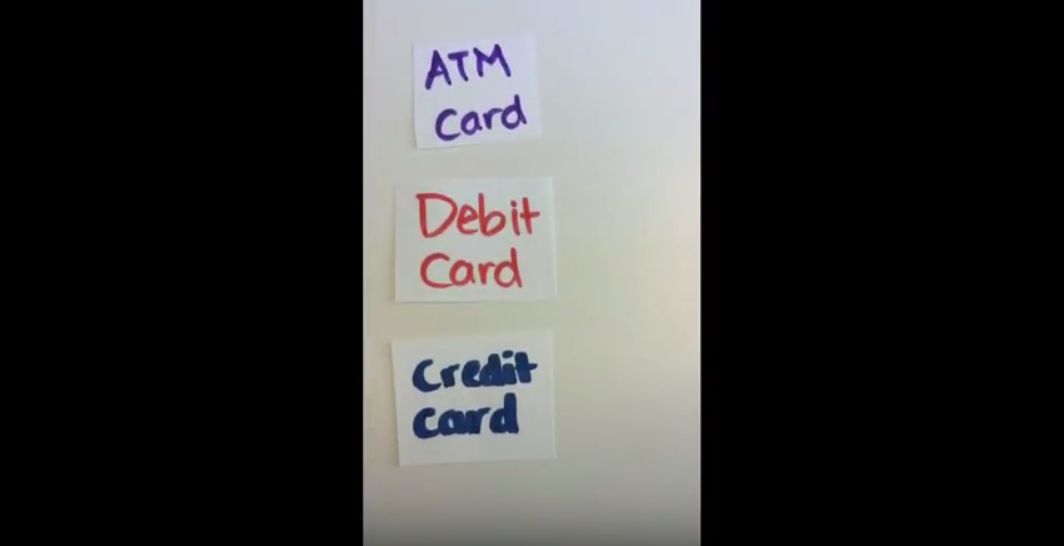 ATM
Card
Debit
Card
Credit
Card